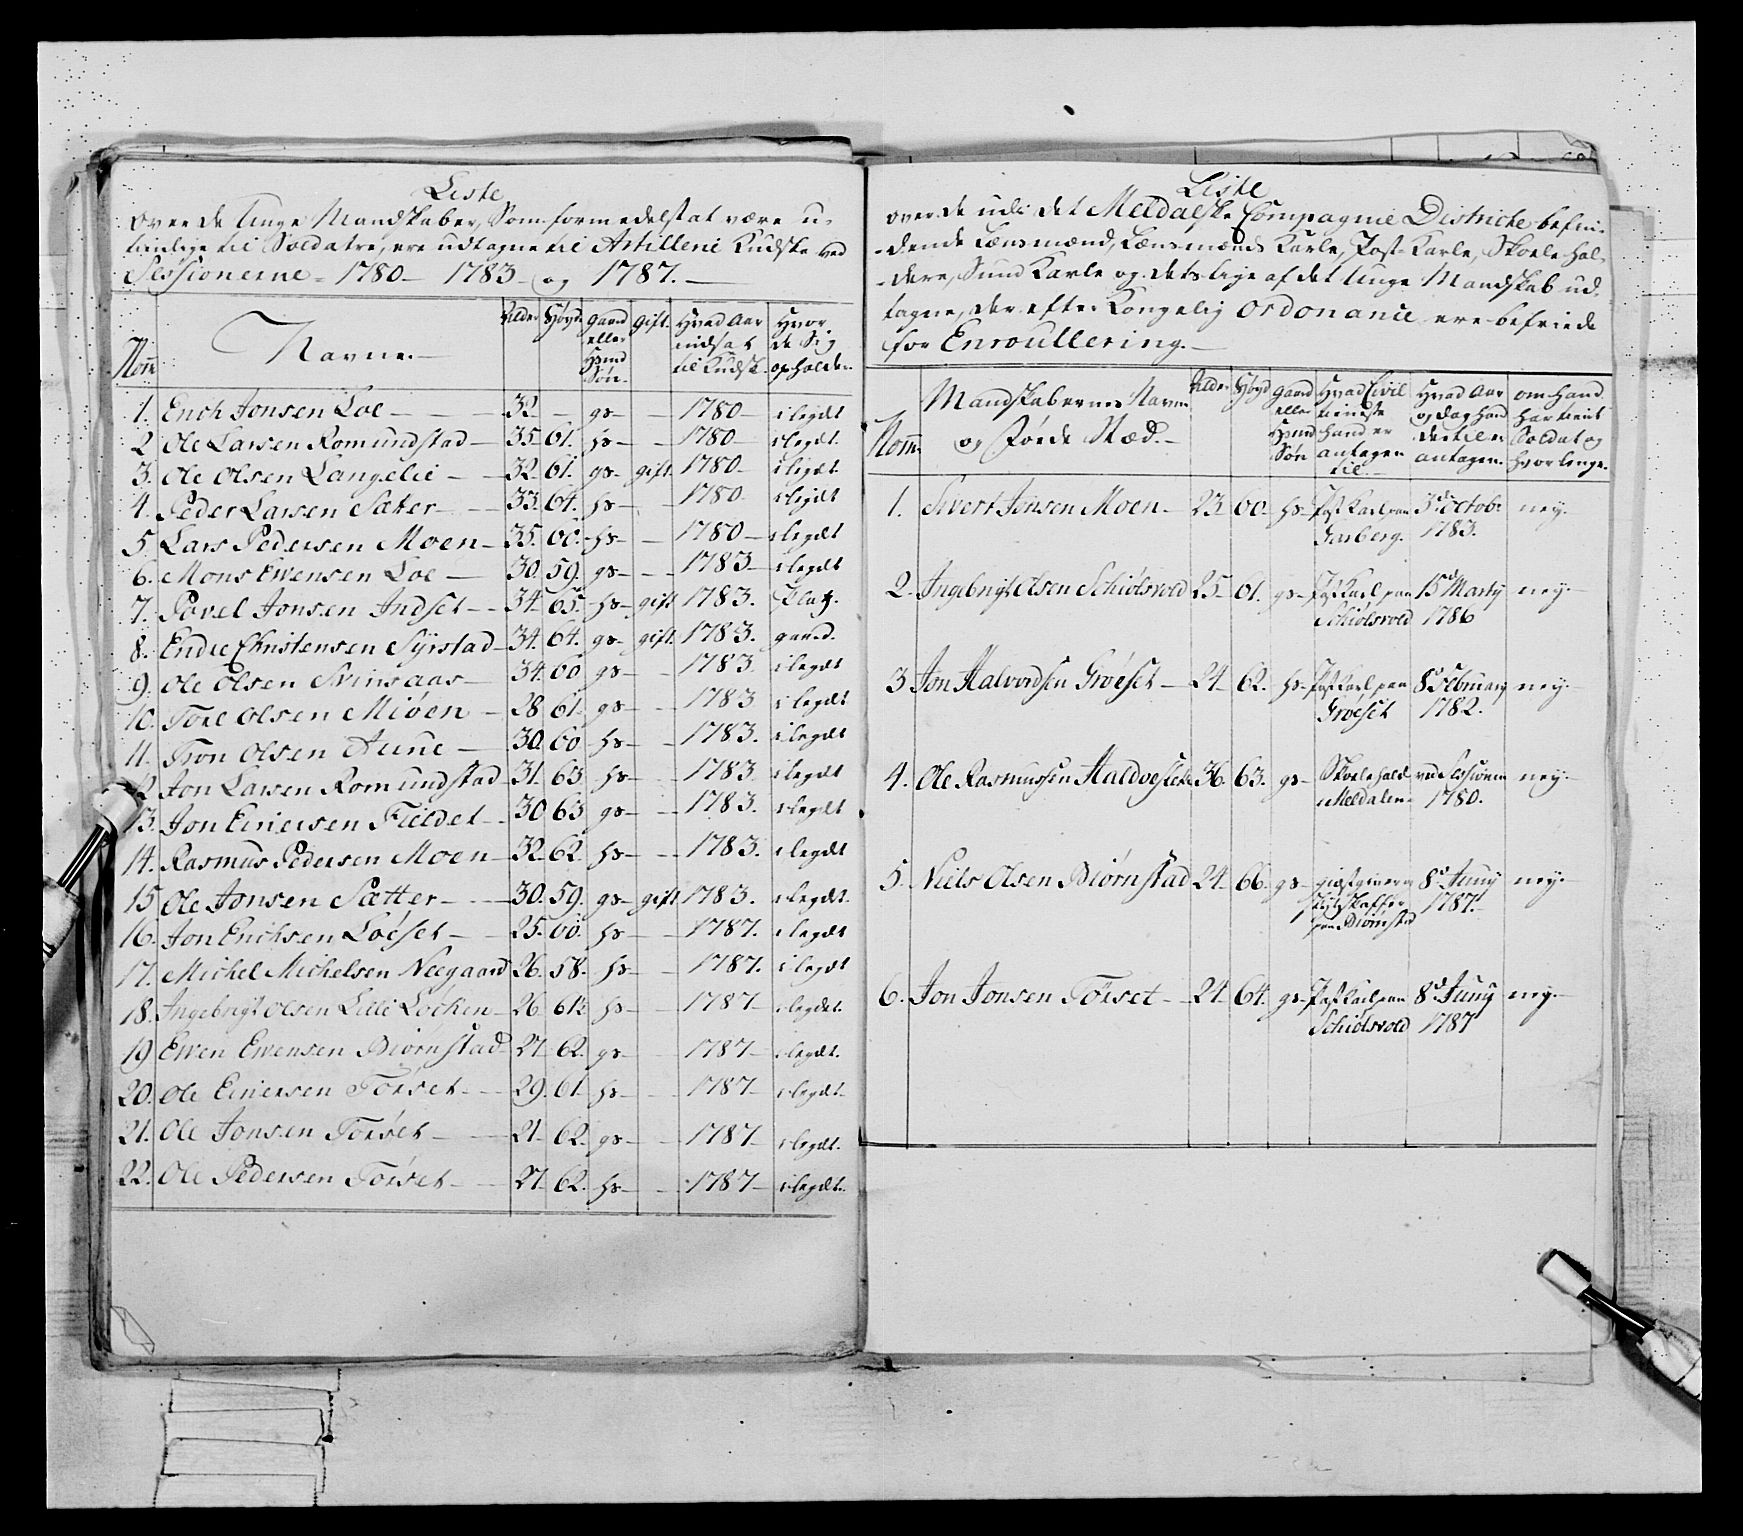 Liste
over de Unge Mandskaber, Som formedelst at være u-
tienlige til Soldatter, ere udtagne til Artillerie Kudske ved
Sessionerne 1780 1783 og 1787.
Nom Navne. Alder Høyde gaard eller Huus Søn. gift. Hvad Aar indsat til Kudsk. Hvor de Sig opholde.
1. Erich Jonsen Loe 32 gs 1780 i legdt
2 Ole Larsen Romundstad 35 61. hs 1780 i legdt.
3. Ole Olsen Langelie 32 61. gs gift. 1780 i legdt
4. Peder Larsen Sæter 33. 64. hs 1780. i legdt
5. Lars Pedersen Moen 35. 60. hs 1780 i legdt
6. Mons Ewensen Loe 30. 59. gs 1783 i legdt
7. Povel Jonsen Indset 34. 65. hs gift 1783. Platz.
8. Endre Christensen Syrstad 34. 64. gs gift. 1783. gaard.
9. Ole Olsen Svinsaas 34. 60 gs 1783. i legdt
10. Tore Olsen Miøen 28 61. gs 1783 i legdt
11. Tron Olsen Aune 30. 60 hs 1783. i legdt
12 Jon Larsen Romundstad 31. 63 hs 1783. i legdt
13. Jon Einersen Fieldet 30 63 gs 1783. i legdt
14. Rasmus Pedersen Moen 32. 62. hs 1783. i legdt
15 Ole Jonsen Sætter 30. 59. gs gift 1783. i legdt.
16. Jon Erichsen Løeset 25. 60. hs 1787. i legdt
17. Michel Michelsen Neegaard 26. 58. hs 1787. i legdt
18. Ingebrigt Olsen Lille Løcken 26. 61½ hs 1787 i legdt.
19 Ewen Ewensen Biørnstad 21. 62. gs 1787 i legdt.
20. Ole Einersen Torset 29. 61 hs 1787 i legdt.
21. Ole Jonsen Torset 21. 62. gs 1787 i legdt.
22. Ole Pedersen Torset 21. 62. hs 1787 i legdt.
Liste
over de udi det Meldalske Compagnie Districte befin-
dende Lænsmænd, Lænsmænds Karle, Post-Karle, Skoele-hol-
dere, Sund Karle og deslige af det Unge Mandskab ud-
tagne, der efter Kongelig Ordonance ere befriede
for Enroullering.
Nom. Mandskabernes Navne ogFøede Stæd. Alder Høyd gaard eller Huus Søn Hvad Civil tieneste hand er antagen til Hvad Aar og dag hand dertil er antagen. om hand har tient Soldat og hvor lenge.
1. Sivert Jonsen Moen 23 60. hs Post Karl paa 3de Octobr ney.
Garberg. 1783.
2. Ingebrigt Olsen Schiølsvold 25 61. gs Post Karl paa 15d Marty ney.
Schiølsvold 1786
3 Jon Halvordsen Grøeset 24. 62. hs Post Karl paa 8d Februarij ney.
Grøeset 1782.
4. Ole Rasmussen 36. 63. gs Skoeleholder ved Sessionen ney.
i Meldalen 1780.
5. Niels Olsen Biørnstad 24. 66. gs giæstgiver og 8d Junij ney.
skydskaffer 1787.
paa Biørnstad
6. Jon Jonsen Torset 21 64. gs Post Karl paa 8d Junij ney.
Schiølsvold 1787